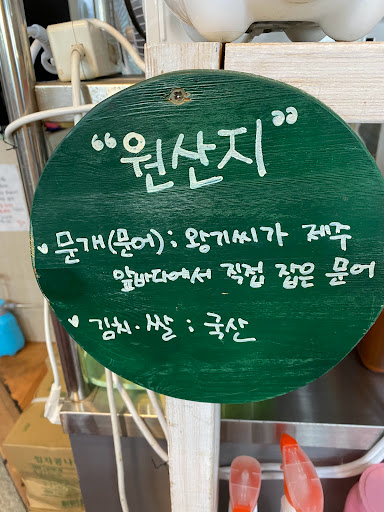 "원산지"
문개(문어) : 왕기씨가 제주
앞바다에서 직접 잡은 문어
김치·쌀 : 국산